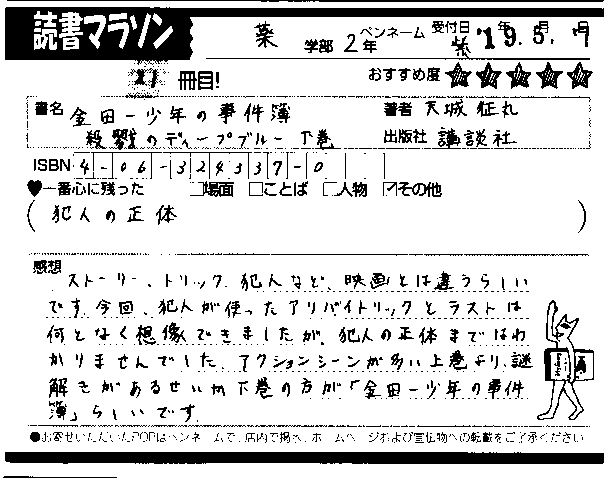 読書マラソン
薬 学部 2年 ペンネーム 受付日 '19年 5月 7日
21 冊目!
おすすめ度 ★★★★★
書名 金田一少年の事件簿 著者 天城征丸
殺戮のディープブルー 下巻 出版社 講談社
ISBN 4-06-324337-0
♥一番心に残った □場面 □ことば □人物 ☑その他
( 犯人の正体 )
感想
ストーリー、トリック、犯人など、映画とは違うらしい
です。今回、犯人が使ったアリバイトリックとラストは
何となく想像できましたが、犯人の正体まではわ
かりませんでした。アクションシーンが多い上巻より、謎
解きがあるせいか下巻の方が「金田一少年の事件
簿」らしいです。
●お寄せいただいたPOPはペンネームで、店内で掲示、ホームページおよび宣伝物への転載をご了承ください